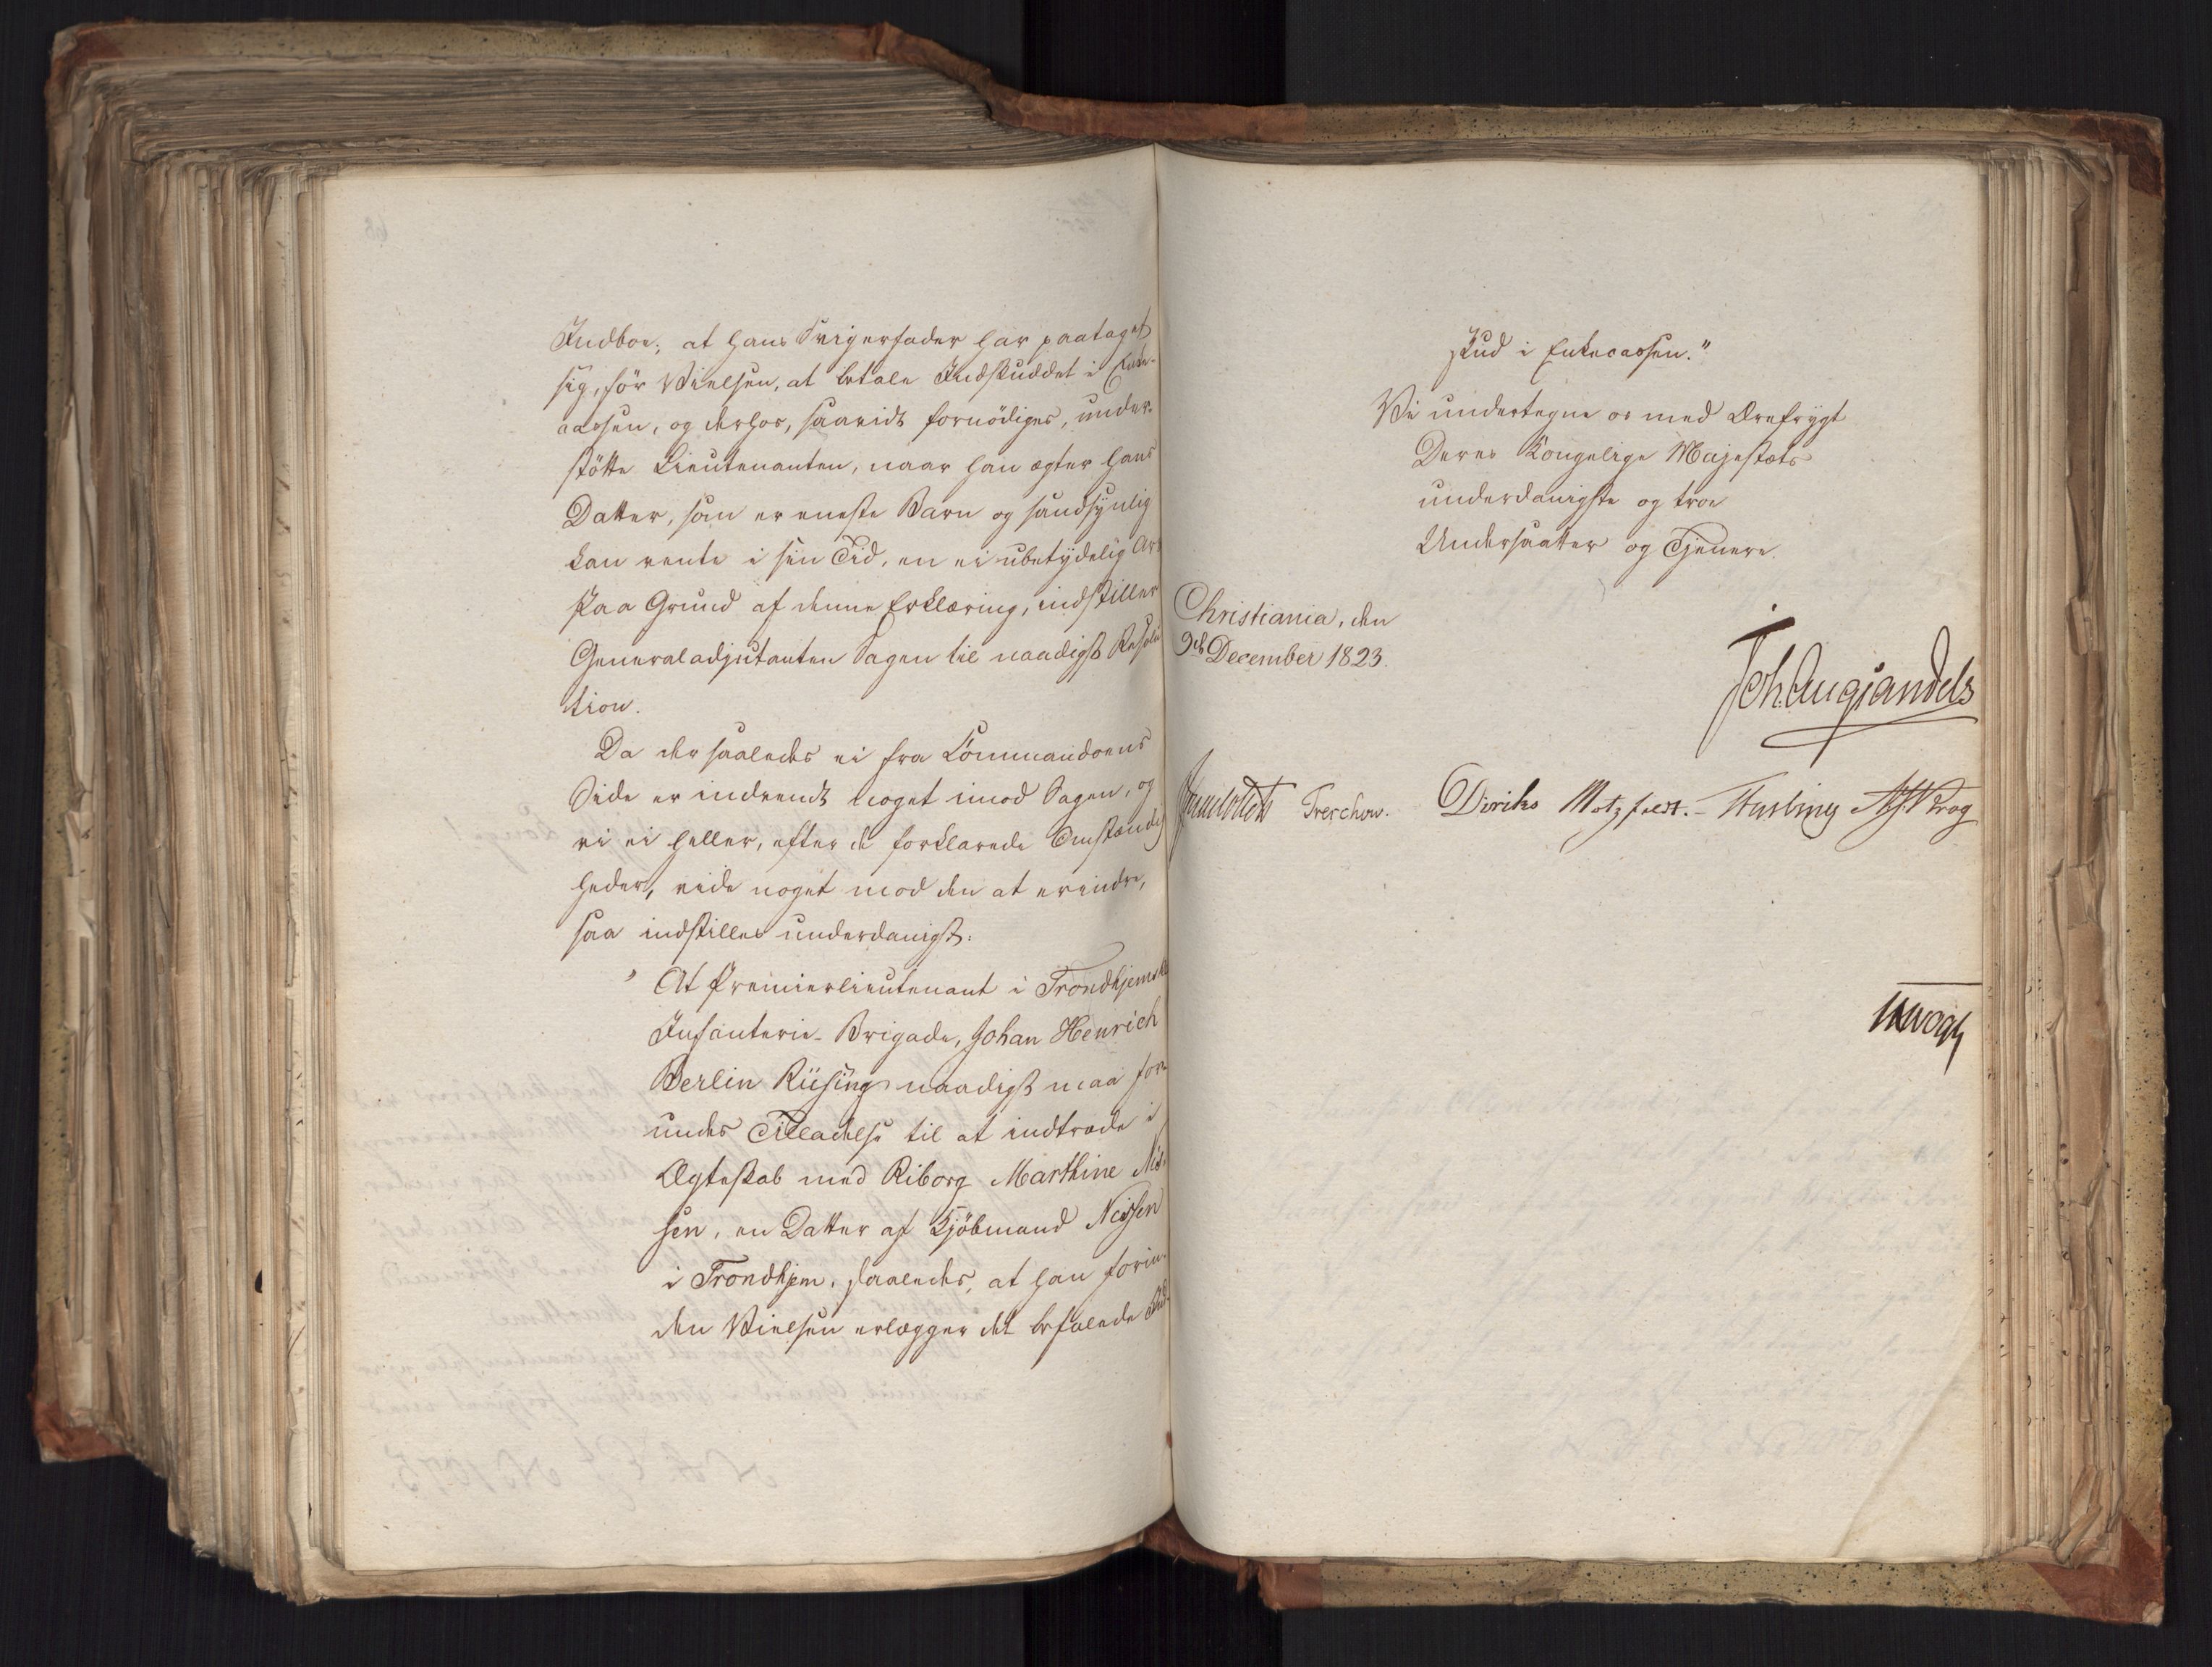 Indboe; at hans Svigerfader har paataget
sig, før Vielsen, at betale Indskuddet i Enke-
cassen, og derhos, saavidt fornödiges, under-
støtte Lieutenanten, naar han ægter hans
Datter, som er eneste Barn og sandsynlig
kan vente i sin Tid, en ei ubetydelig Arv
Paa Grund af denne Erklæring, indstiller
Generaladjutanten Sagen til naadigst Resolu
tion.
Da der saaledes ei fra Commandoens
Side er indvendt noget imod Sagen, og
vi ei heller, efter de forklarede Omstændig
heder, vide noget mod den at erindre,
saa indstilles underdanigst:
" At Premierlieutenant i Trondhjemske
Infanterie-Brigade, Johan Henrich
Berlin Rüsing naadigst maa for-
undes Tilladelse til at indtræde i
Ægteskab med Riborg Marthine Nis-
sen, en Datter af Kjöbmand Nissen
i Trondhjem, saaledes, at han forin-
den Vielsen erlægger det befalede Ind-
skud i Enkecassen."
Vi undertegne os med Ærefrygt
Deres Kongelige Majestæts
underdanigste og troe
Undersaatter og Tjenere.
Christiania, den
9de December 1823.
Joh. Aug. Sandels
Treschow. Diriks Motzfeldt. Fasting Krog
Vogt